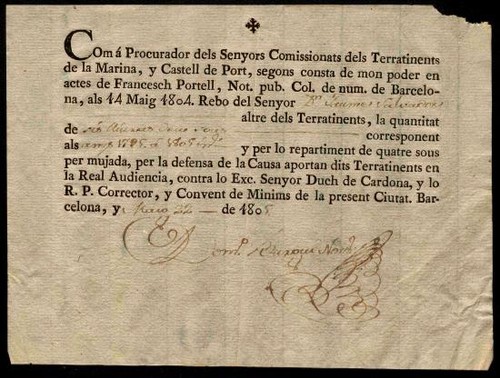 COm á Procurador dels Senyors Comissionats dels Terratinents
de la Marina, y Castell de Port, segons consta de mon poder en
actes de Francesch Portell, Not. pub. Col. de num. de Barcelo-
na, als 14 Maig 1804. Rebo del Senyor Dn. Jaume Salvador
altre dels Terratinents, la quantitat
de corresponent
als y per lo repartiment de quatre sous
per mujada, per la defensa de la Causa aportan dits Terratinents en
la Real Audiencia, contra lo Exc. Senyor Duch de Cardona, y lo
R. P. Corrector, y Convent de Minims de la present Ciutat. Bar-
celona, y 22 de 1805